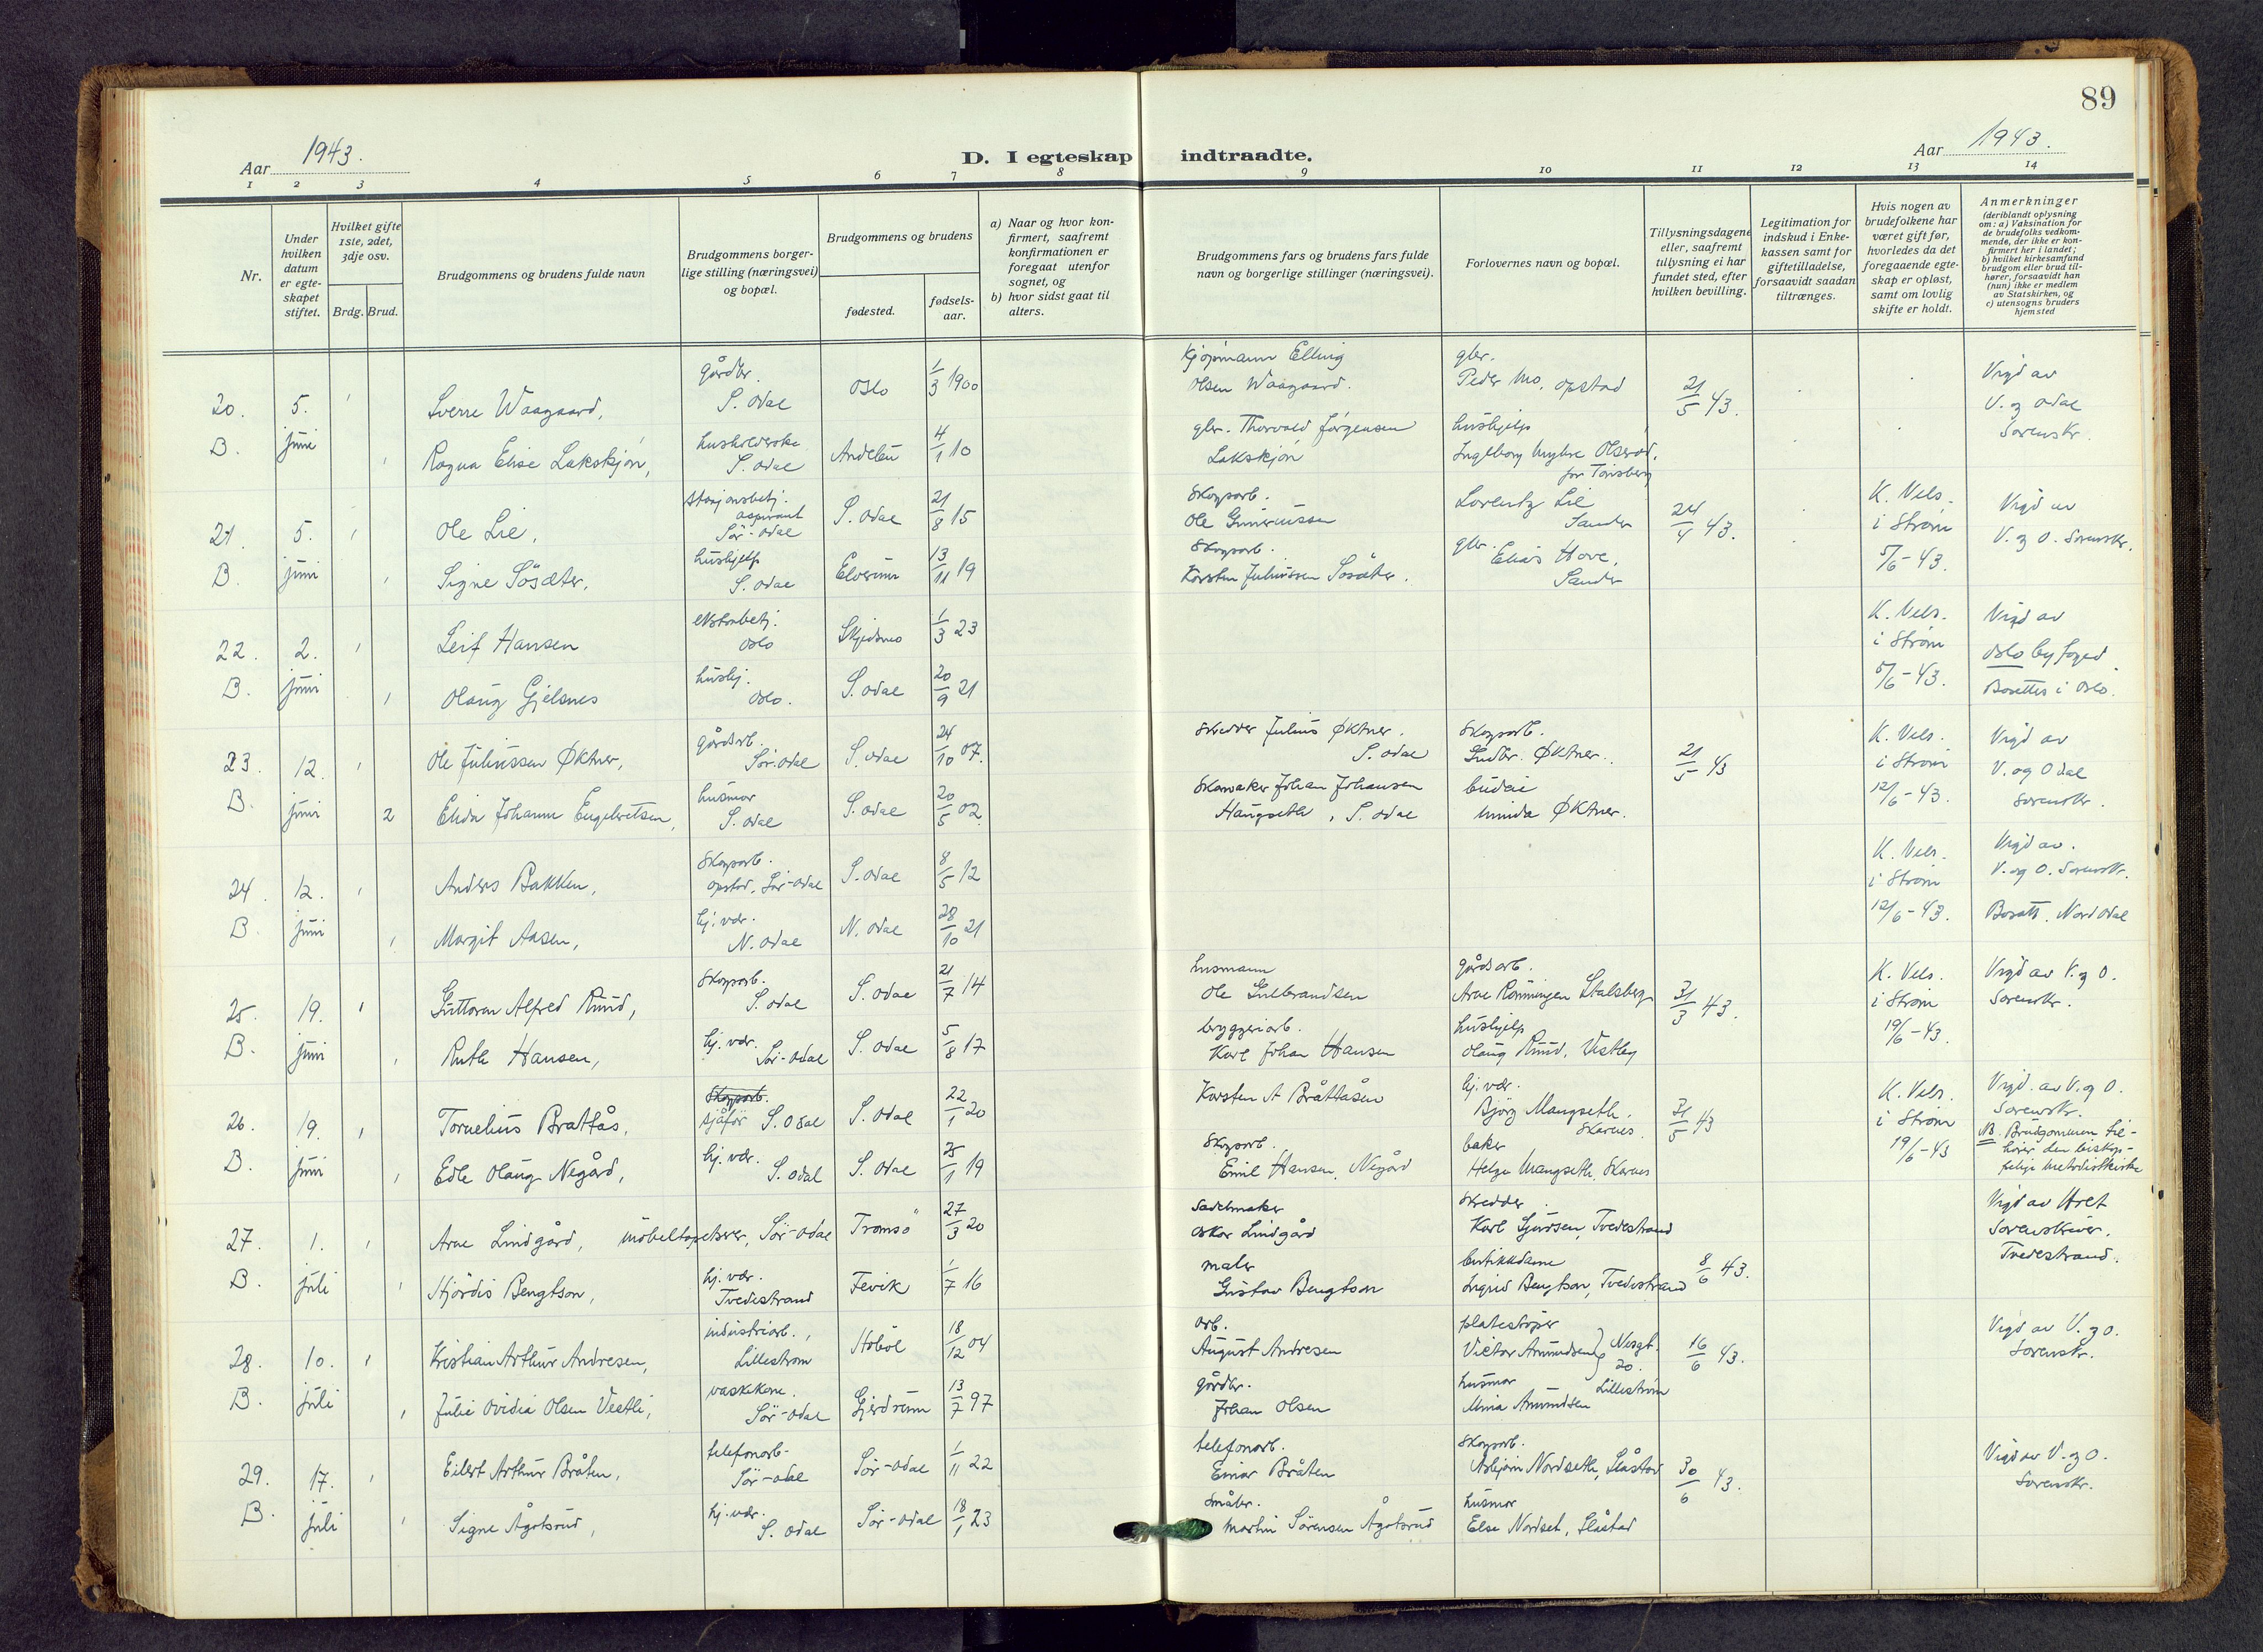 89
Aar 1943.
D. I egteskap indtraadte.
Aar 1943.
1 2 3 4 5 6 7 8 9 10 11 12 13 14
Nr.
Under hvilken datum er egteskapet stiftet.
Hvilket gifte 1ste, 2det, 3dje osv.
Brdg. Brud.
Brudgommens og brudens fulde navn
Brudgommens borgerlige stilling (næringsvei) og bopæl.
Brudgommens og brudens
fødested.
fødselsaar.
a) Naar og hvor konfirmert, saafremt konfirmationen er foregaat utenfor sognet, og
b) hvor sidst gaat til alters.
Brudgommens fars og brudens fars fulde navn og borgerlige stillinger (næringsvei).
Forlovernes navn og bopæl.
Tillysningsdagene eller, saafremt tillysning ei har fundet sted, efter hvilken bevilling.
Legitimation for indskud i Enkekassen samt for giftetilladelse, forsaavidt saadan tiltrænges.
Hvis nogen av brudefolkene har været gift før, hvorledes da det foregaaende egteskap er opløst, samt om lovlig skifte er holdt.
Anmerkninger
(deriblandt oplysning om: a) Vaksination for de brudefolks vedkommende, der ikke er konfirmert her i landet;
b) hvilket kirkesamfund brudgom eller brud tilhører, forsaavidt han (hun) ikke er medlem av Statskirken, og
c) utensogns bruders hjemsted
20. 5. 1 Sverre Waagaard, gårdbr. S. Odal Oslo 1/3 1900 Kjøpmann Elling Olsen Waagaard. gbr. Peder Mo, Opstad 21/5 43. Vigd av V. og Odal Sorenskr.
B. juni 1 Ragna Elise Lakskjøn, husholderske S. Odal Andebu 4/1 10 gbr. Thorvald Jørgensen Lakskjøn hushjelp Ingeborg Myhre Olserød, for Tønsberg
21. 5. 1 Ole Lie, stasjonsbetj. aspirant Sør-Odal S. Odal 21/8 15 Skogsarb. Ole Gunerussen Lorentz Lie Sander 24/4 43. K. Vels. i Strøm 5/6-43. Vigd av V. og O. Sorenskr.
B. juni 1 Signe Søsæter, hushjelp S. Odal Elverum 13/11 19 Skogsarb. Karsten Juliussen Søsæter. gbr. Elias Hove, Sander
22. 2. 1 Leif Hansen ekstrabetj. Oslo Skjedsmo 1/3 23 K. Vels. i Strøm 5/6-43. Vigd av Oslo byfoged. Bosettes i Oslo.
B. juni 1 Olaug Gjelsnes hushj. Oslo. S. Odal 20/9 21
23. 12. 1 Ole Juliussen Øktner, gårdarb. Sør-Odal S. Odal 24/10 07. Skredder Julius Øktner. S. Odal Skogsarb. Gudbr. Øktner. 21/5 43 K. Vels. i Strøm 12/6-43. Vigd av V. og Odal Sorenskr.
B. juni 2 Elida Johanne Engebretsen, husmor S. Odal S. Odal 20/5 02. Skomaker Johan Johansen Haugseth, S. Odal budeie Minda Øktner.
24. 12. 1 Anders Bakken, Skogsarb. Opstad, Sør-Odal S. Odal 8/5 12 K. Vels. i Strøm 12/6-43. Vigd av. V. og O. Sorenskr. Bosatt. Nord Odal
B. juni 1 Margit Aasen, hj. vær. N. Odal N. Odal 28/10 21
25. 19. 1 Guttorm Alfred Ruud, Skogsarb. S. Odal S. Odal 21/7 14 husmann Ole Gulbrandsen gårdsarb. Arne Rønningen Stalsberg 31/3 43. K. Vels. i Strøm 19/6-43. Vigd av V. og O. Sorenskr.
B. juni 1 Ruth Hansen, hj. vær. Sør-Odal S. Odal 5/8 17 bryggeriarb. Karl Johan Hansen hushjelp Olaug Ruud, Vestby
26. 19. 1 Tornelius Brattås, Skogsarb. sjåför S. Odal S. Odal 22/1 20 Karsten A Bråttåsen hj. vær. Bjørg Mangseth. Skarnes. 31/5 43 K. Vels. i Strøm 19/6-43 Vigd. av V. og O. Sorenskr. NB. Brudgommen tilhører den biskoppelige Metodistkirke
B. juni 1 Edle Olaug Negård, hj. vær. S. Odal S. Odal 25/1 19 Skogsarb. Emil Hansen, Negård baker Helge Mangseth, Skarnes
27. 1. 1 Arne Lindgård, möbeltapetserer, Sør-Odal Tromsö 27/3 20 Sadelmaker Oskar Lindgård skredder Karl Gjursen, Tvedestrand 8/6 43. Vigd av Holt Sorenskriver. Tvedestrand.
B. juli 1 Hjördis Bengtson, hj. vær. Tvedestrand Fevik 1/7 16 maler Gustav Bengtson butikkdame Ingrid Bengtson, Tvedestrand
28. 10. 1 Kristian Arthur Andresen, industriarb., Lillestrøm Hobøl 18/12 04 arb. August Andresen platestøper Victor Amundsen Nesgt. 20. Lillestrøm 16/6 43. Vigd av V. og O. Sorenskr.
B. juli 1 Julie Ovidia Olsen Vestli, vaskekone. Sør-Odal Gjerdrum 13/7 97 gårdbr. Johan Olsen husmor Mina Amundsen
29. 17. 1 Eilert Arthur Bråten, telefonarb. Sør-Odal Sør-Odal 1/11 22 telefonarb. Einar Bråten Skogsarb. Asbjørn Nordseth, Slåstad 30/6 43. Vigd av V. og O. Sorenskr.
B. juli 1 Signe Ågotsrud, hj. vær. S. Odal Sør-Odal 18/1 23 Småbr. Martin Sørensen Ågotsrud husmor Else Nordset, Slåstad